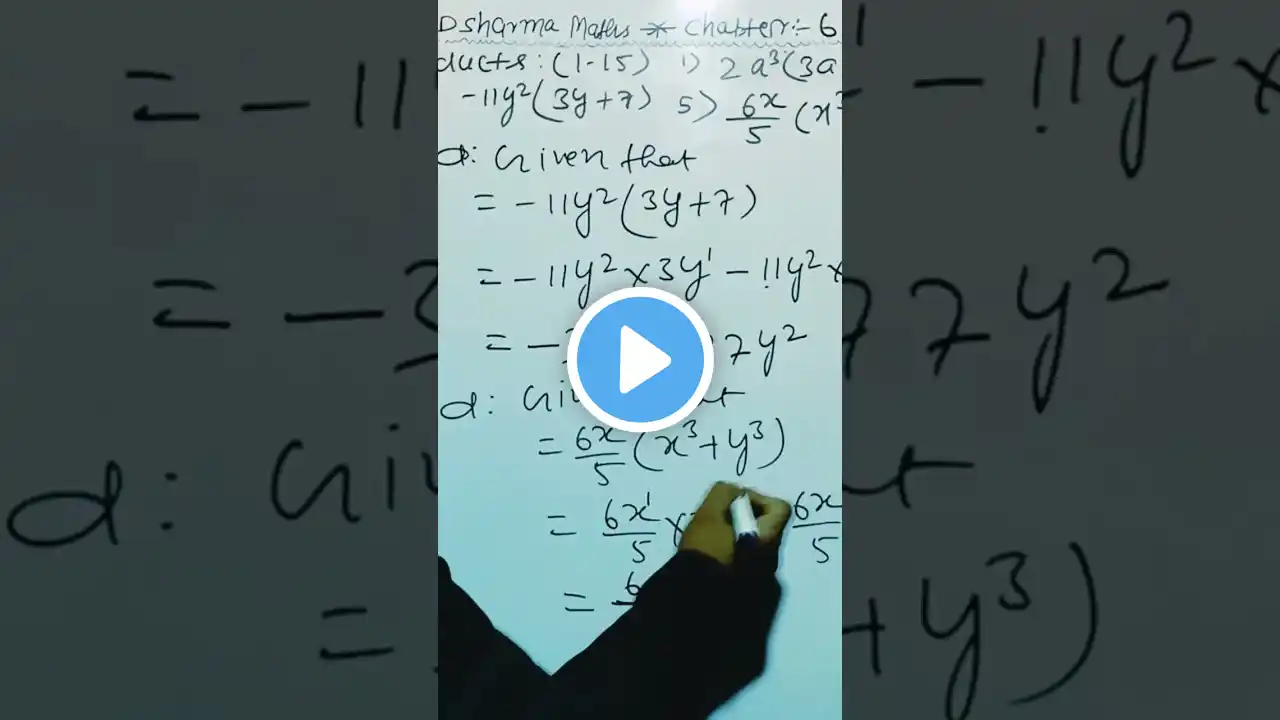 Dsharma Maths * Chapter:- 6
ducts: (1-15) 1) 2a³(3a
-11y²(3y+7) 5) 6x/5 (x³
d: Given that
= -11y²(3y+7)
= -11y² × 3y¹ - 11y² ×
= -3 77y²
d: Given that
= 6x/5 (x³+y³)
= 6x¹/5 × 6x/5
= 6